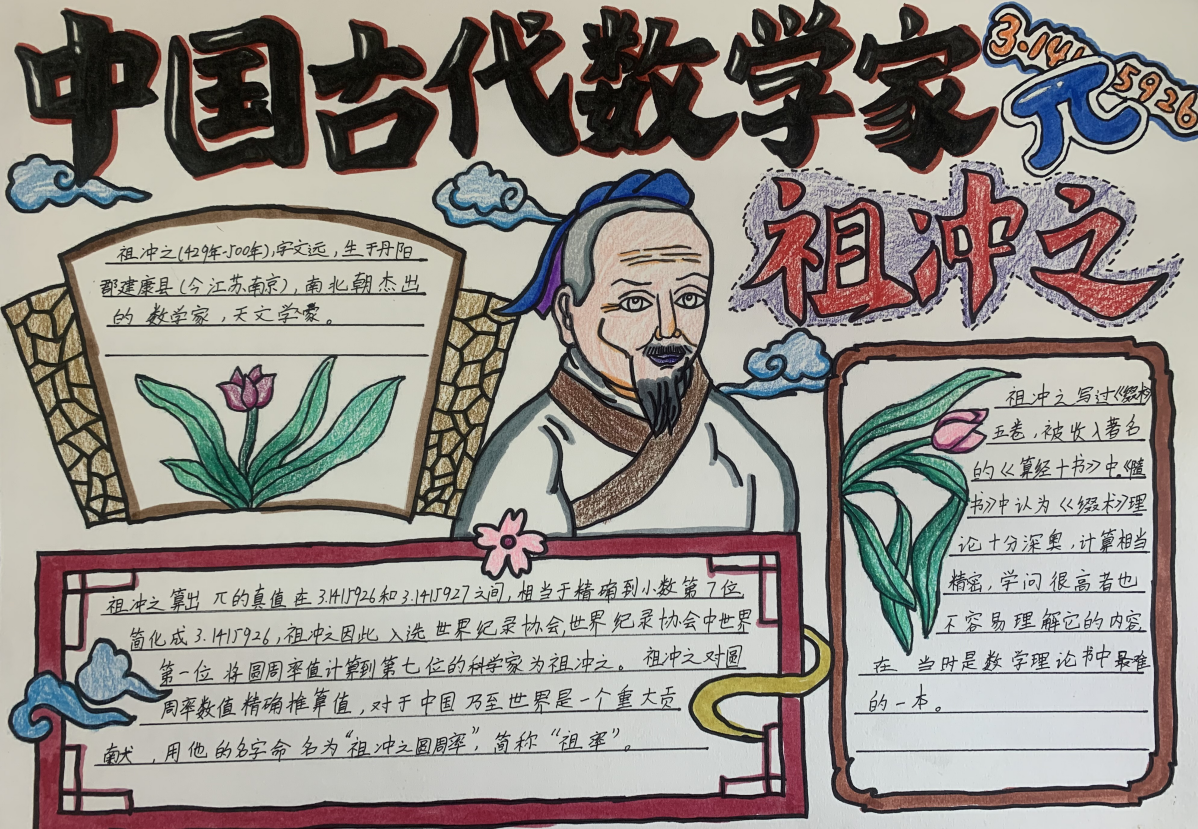 中国古代数学家
3.1415926
π
祖冲之
祖冲之(429年-500年),字文远,生于丹阳
郡建康县(今江苏南京),南北朝杰出
的数学家,天文学家。
祖冲之写过《缀术》
五卷,被收入著名
的《算经十书》中。《隋
书》中认为《缀术》理
论十分深奥,计算相当
精密,学问很高者也
不容易理解它的内容
在当时是数学理论书中最难
的一本。
祖冲之算出π的真值在3.1415926和3.1415927之间,相当于精确到小数第7位
简化成3.1415926,祖冲之因此入选世界纪录协会,世界纪录协会中世界
第一位将圆周率值计算到第七位的科学家为祖冲之。祖冲之对圆
周率数值精确推算值,对于中国乃至世界是一个重大贡
献,用他的名字命名为“祖冲之圆周率”,简称“祖率”。